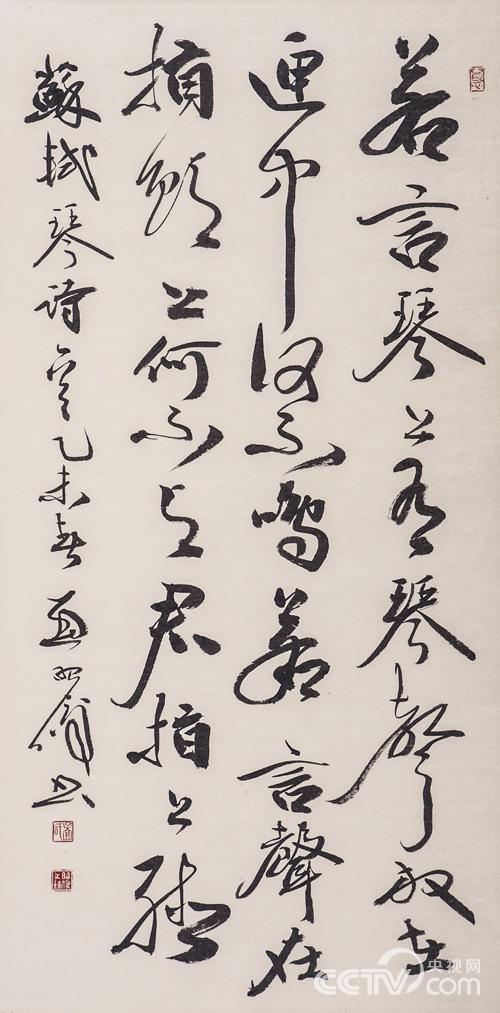 若言琴上有琴聲放在
匣中何不鳴若言聲在
指頭上何不於君指上聽
蘇軾琴詩 乙未春 書
央视网
CCTV.com